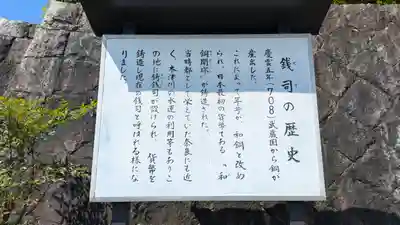 銭司の歴史
慶雲五年(708)武蔵国から銅が
産出した。
これによって年号が 和銅と改め
られ、日本最初の貨幣である 〝和
銅開珎〟が鋳造された。
当時都として栄えていた奈良にも近
く、木津川の水運の利用等もありこ
の地に鋳銭司が設けられ、貨幣を
鋳造し現在の銭司と呼ばれる様にな
りました。